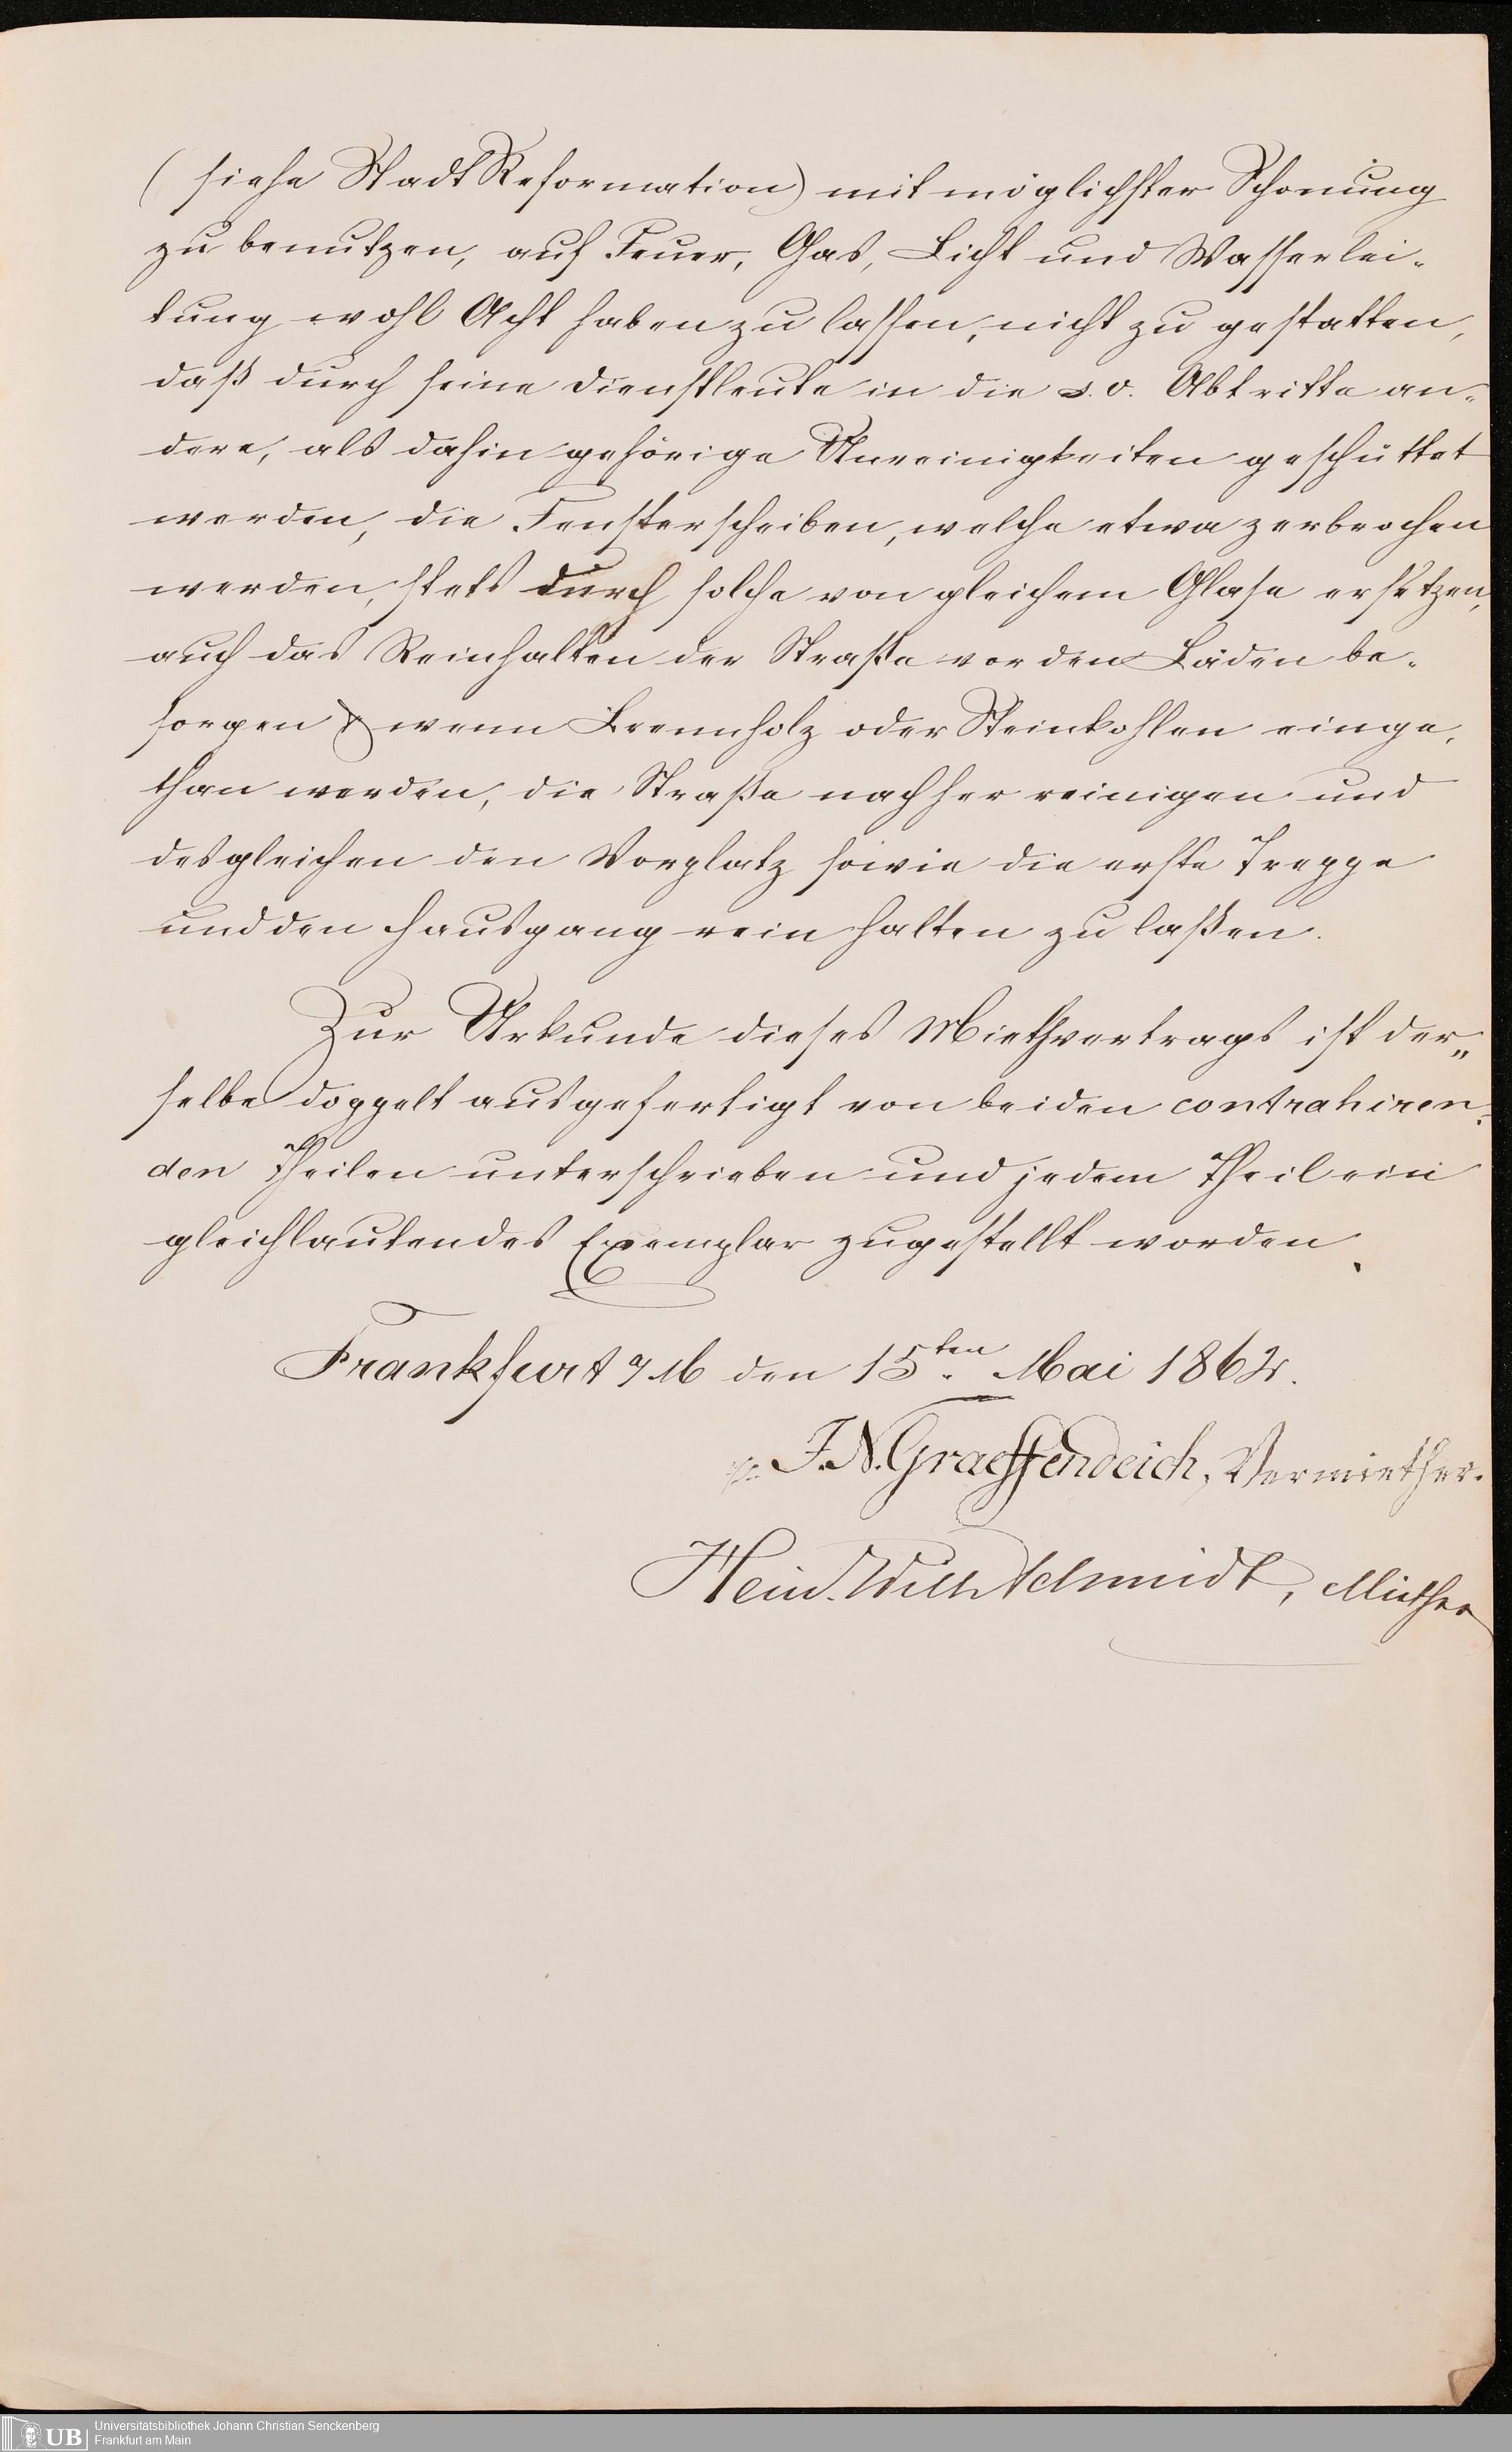 (siehe Stadt Reformation) mit möglichster Schonung
zu benutzen, auf Feuer, Gas, Licht und Wasserlei-
tung wohl Acht haben zu lassen, nicht zu gestatten,
daß durch seine Dienstleute in die s.v. Abtritte an-
dere, als dahin gehörige Unreinigkeiten geschüttet
werden, die Fensterscheiben, welche etwa zerbrochen
werden, stets durch solche von gleichem Glase ersetzen,
auch das Reinhalten der Straße vor den Läden be-
sorgen & wenn Brennholz oder Steinkohlen einge-
than werden, die Straße nachher reinigen und
desgleichen den Vorplatz sowie die erste Treppe
und den Hausgang rein halten zu laßen.
Zur Urkunde dieses Miethvertrags ist der-
selbe doppelt ausgefertigt von beiden contrahiren-
den Theilen unterschrieben und jedem Theil ein
gleichlautendes Exemplar zugestellt worden.
Frankfurt a/M den 15ten Mai 1862.
J. N. Graeffendeich, Vermiether.
Heinr. Wilh Schmidt, Miether
Universitätsbibliothek Johann Christian Senckenberg
UB Frankfurt am Main